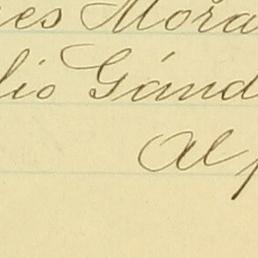 es Mora
lio Gánd
Al